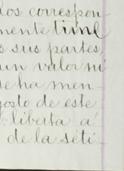 dos correspon-
mente timl
s sus partes,
un valor ni
se ha men-
gosto de este
liberta á
de la seti-